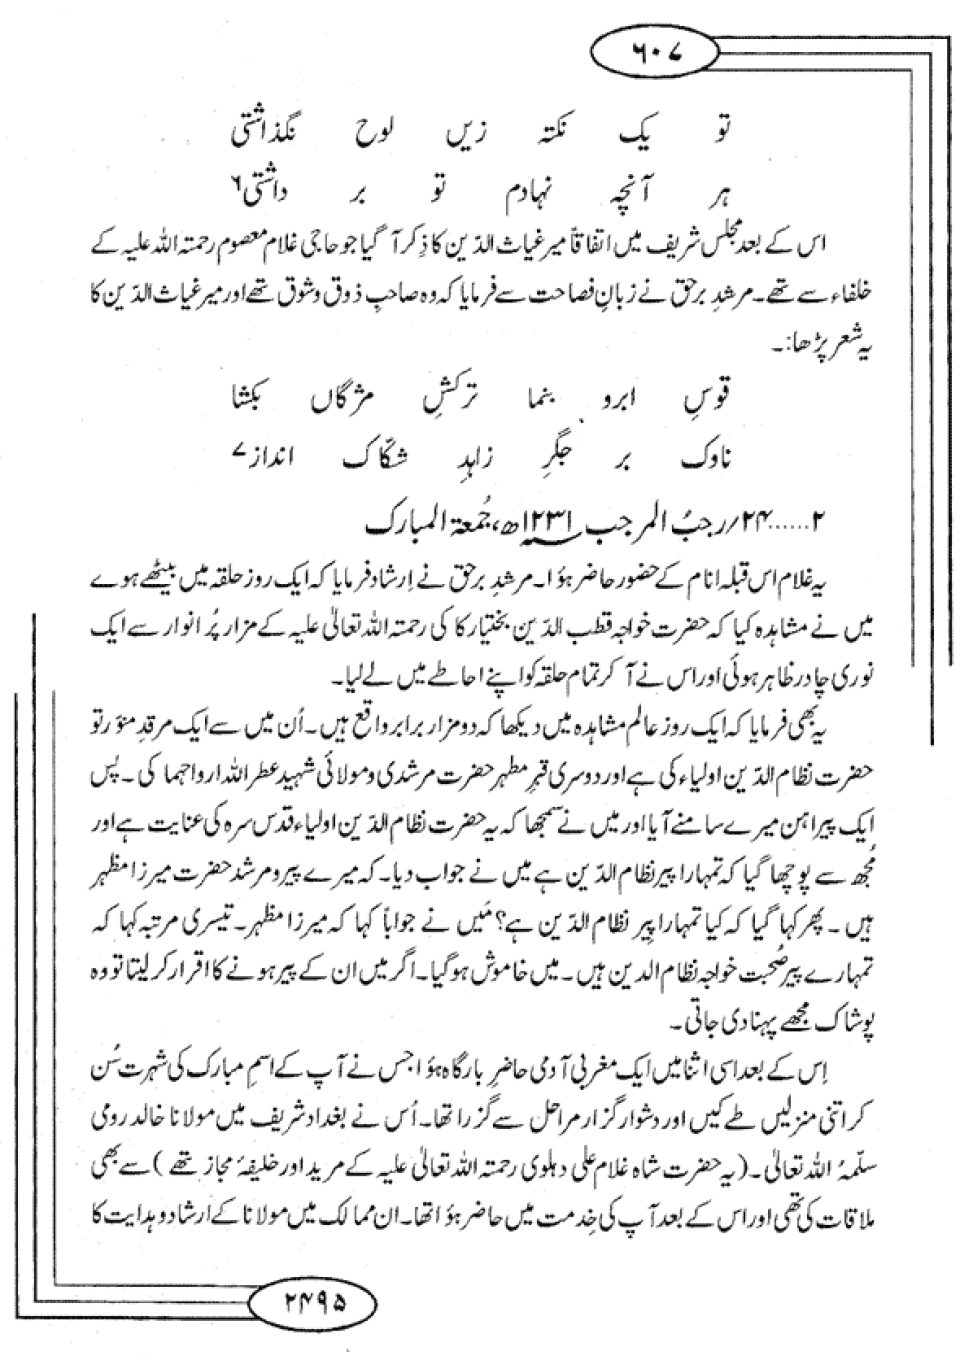 ۶۰۷
تو یک نکتہ زیں لوح نگذاشتی
ہر آنچہ نہادم تو بر داشتی۶
اس کے بعد مجلس شریف میں اتفاقاً میر غیاث الدّین کا ذِکر آ گیا جو حاجی غلام معصوم رحمتہ اللہ علیہ کے
خلفاء سے تھے۔ مرشدِ برحق نے زبانِ فصاحت سے فرمایا کہ وہ صاحبِ ذوق و شوق تھے اور میر غیاث الدّین کا
یہ شعر پڑھا:۔
قوسِ ابرو بنما ترکشِ مژگاں بکشا
ناوک بر جگرِ زاہدِ شکّاک انداز۷
۲……۲۴/رجبُ المرجب ۱۲۳۱ھ، جُمعۃ المبارک
یہ غلام اس قبلہ انام کے حضور حاضر ہؤا۔ مرشدِ برحق نے اِرشاد فرمایا کہ ایک روز حلقہ میں بیٹھے ہوے
میں نے مشاہدہ کیا کہ حضرت خواجہ قطب الدّین بختیار کا کی رحمتہ اللہ تعالیٰ علیہ کے مزار پُر انوار سے ایک
نوری چادر ظاہر ہوئی اور اس نے آ کر تمام حلقہ کو اپنے احاطے میں لے لیا۔
یہ بھی فرمایا کہ ایک روز عالم مشاہدہ میں دیکھا کہ دو مزار برابر واقع ہیں۔ اُن میں سے ایک مرقدِ منوّر تو
حضرت نظام الدّین اولیاء کی ہے اور دوسری قبرِ مطہر حضرت مرشدی و مولائی شہید عطر اللہ ارواحہما کی۔ پس
ایک پیراہن میرے سامنے آیا اور میں نے سمجھا کہ یہ حضرت نظام الدّین اولیاء قدس سرہ کی عنایت ہے اور
مُجھ سے پوچھا گیا کہ تمہارا پیر نظام الدّین ہے میں نے جواب دیا۔ کہ میرے پیر و مرشد حضرت میرزا مظہر
ہیں۔ پھر کہا گیا کہ کیا تمہارا پیر نظام الدّین ہے؟ مَیں نے جواباً کہا کہ میرزا مظہر۔ تیسری مرتبہ کہا کہ
تمہارے پیرِ صُحبت خواجہ نظام الدین ہیں۔ میں خاموش ہو گیا۔ اگر میں ان کے پیر ہونے کا اقرار کر لیتا تو وہ
پوشاک مجھے پہنا دی جاتی۔
اِس کے بعد اسی اثنا میں ایک مغربی آدمی حاضرِ بارگاہ ہؤا جس نے آپ کے اسمِ مبارک کی شہرت سُن
کر اتنی منزلیں طے کیں اور دشوار گزار مراحل سے گزرا تھا۔ اُس نے بغداد شریف میں مولانا خالد رومی
سلّمہُ اللہ تعالیٰ۔ (یہ حضرت شاہ غلام علی دہلوی رحمتہ اللہ تعالیٰ علیہ کے مرید اور خلیفۂ مجاز تھے) سے بھی
ملاقات کی تھی اور اس کے بعد آپ کی خِدمت میں حاضر ہؤا تھا۔ ان ممالک میں مولانا کے ارشاد و ہدایت کا
۲۴۹۵